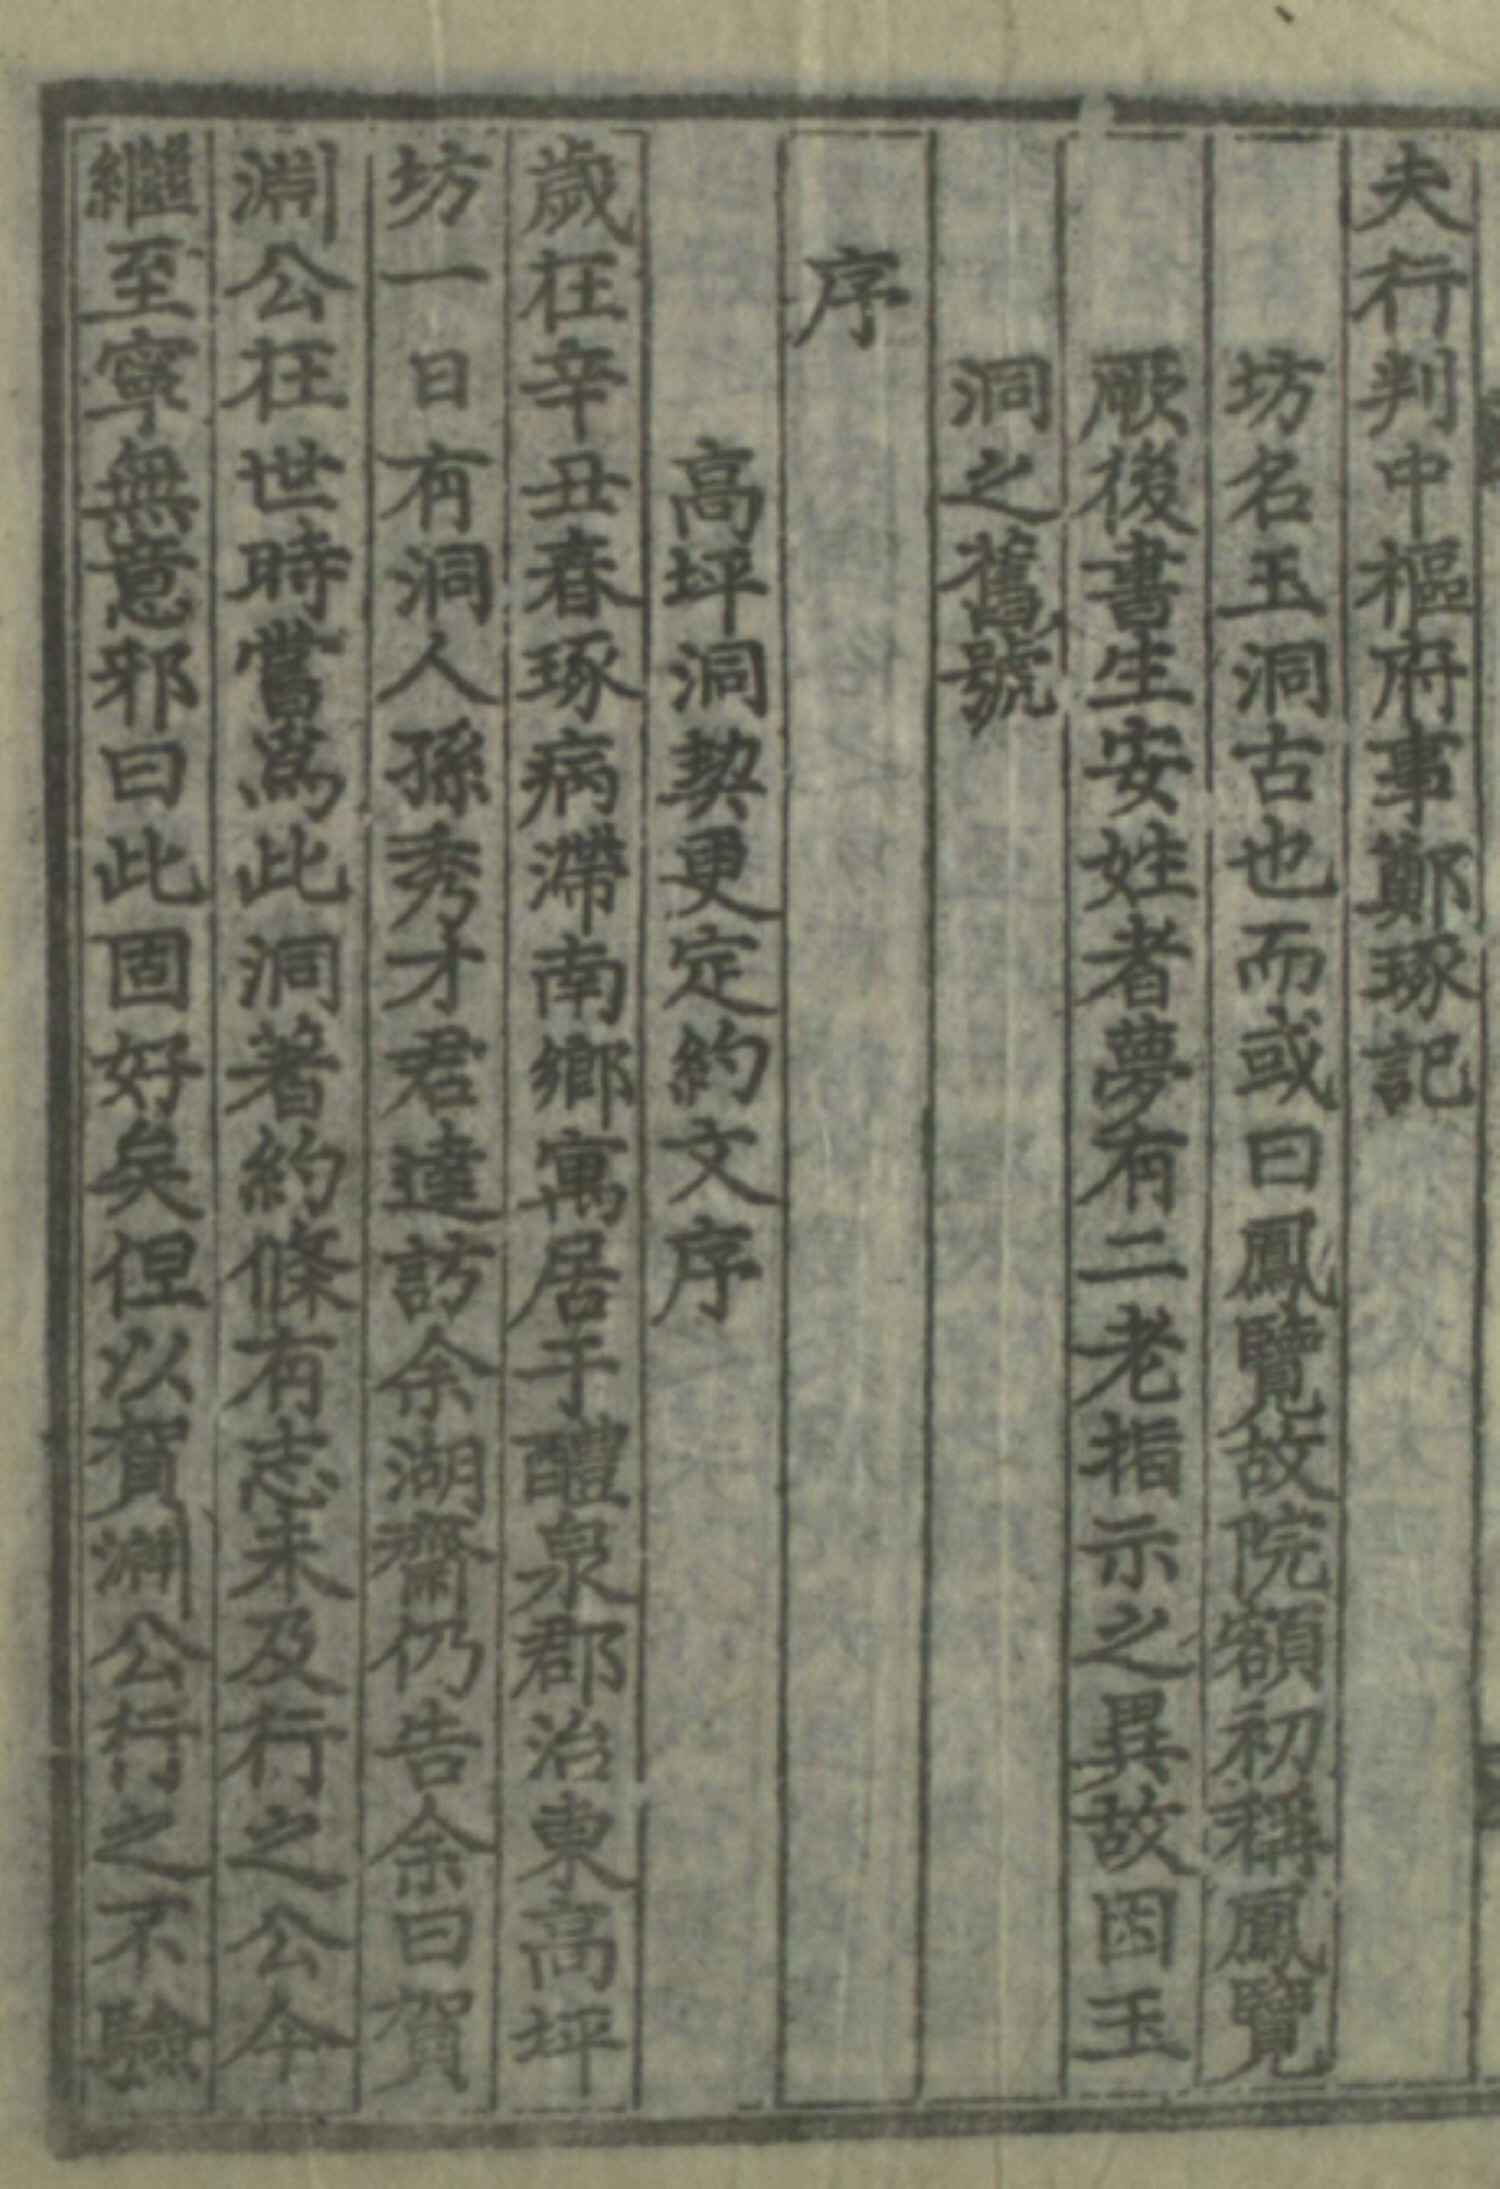 夫行判中樞府事鄭琢記
坊名玉洞古也而或曰鳳覽故院額初稱鳳覽
厥後書生安姓者夢有二老指示之異故因玉
洞之舊號
序
高坪洞契更定約文序
歲在辛丑春琢病滯南鄉寓居于醴泉郡治東高坪
坊一日有洞人孫秀才君達訪余湖齋仍告余曰賀
淵公在世時嘗爲此洞著約條有志未及行之公今
繼至寧無意邪曰此固好矣但以賀淵公行之不驗